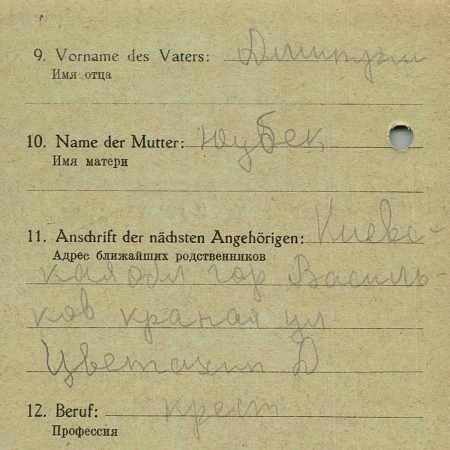 9. Vorname des Vaters: Дмитрий
Имя отца
10. Name der Mutter: Юубек
Имя матери
11. Anschrift der nächsten Angehörigen: Киевс-
Адрес ближайших родственников
кая обл гор Василь-
ков краная ул
Д
12. Beruf: крест
Профессия